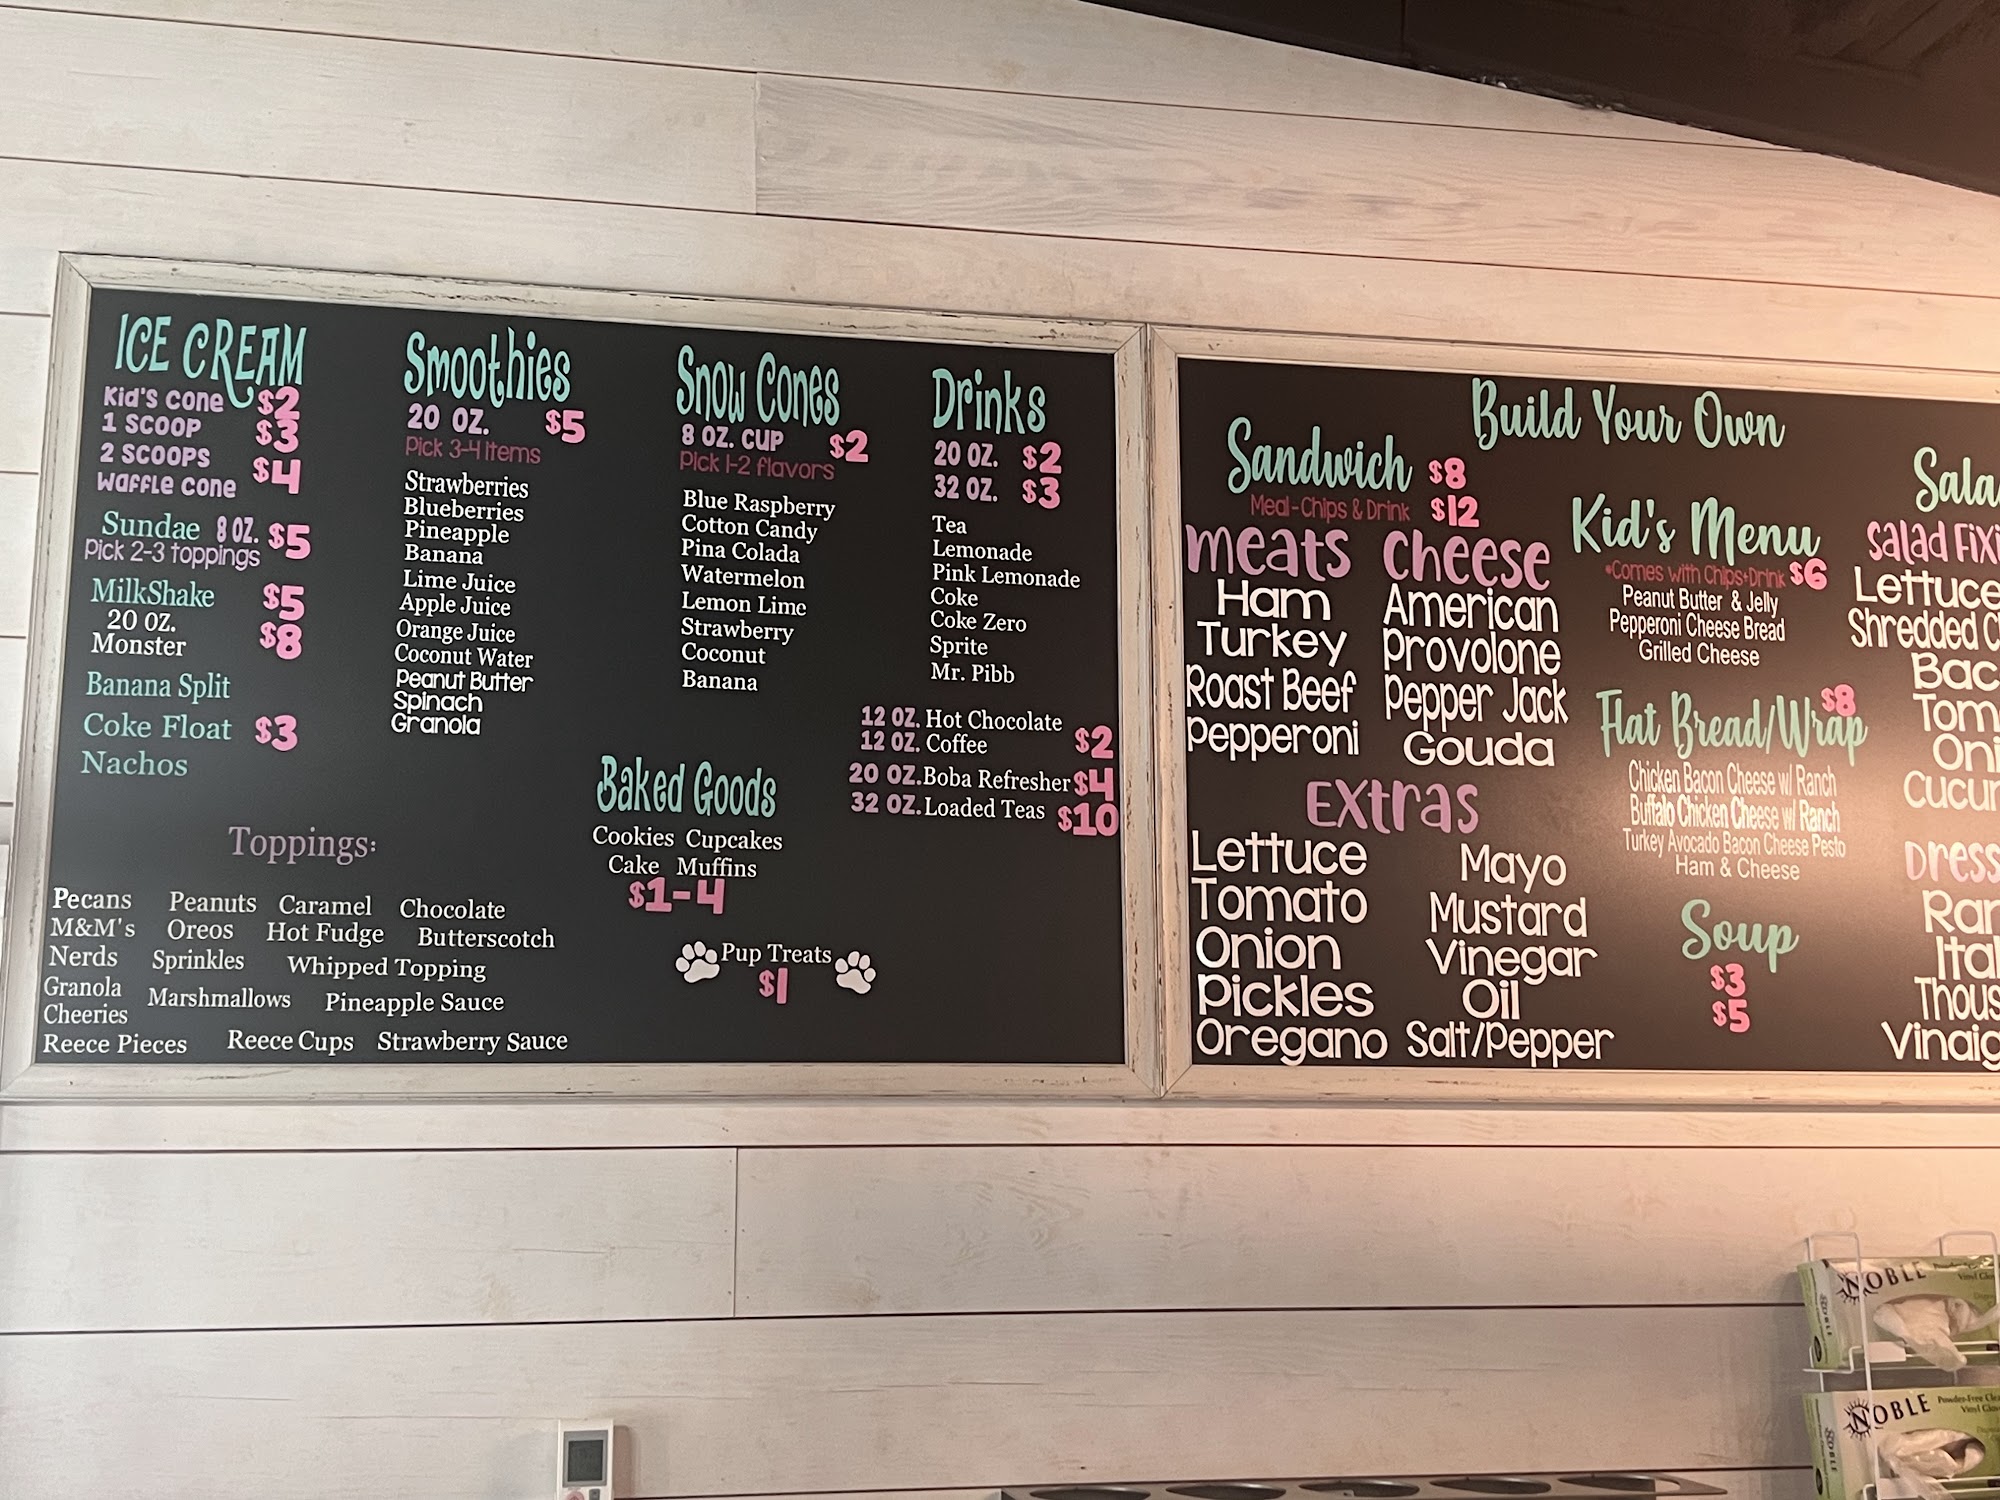 ICE CREAM
Kid's cone $2
1 scoop $3
2 scoops $4
waffle cone
Sundae 8 oz. $5
Pick 2-3 toppings
MilkShake $5
20 oz. $8
Monster
Banana Split
Coke Float $3
Nachos
Smoothies
20 oz. $5
Pick 3-4 Items
Strawberries
Blueberries
Pineapple
Banana
Lime Juice
Apple Juice
Orange Juice
Coconut Water
Peanut Butter
Spinach
Granola
Snow Cones
8 oz. cup $2
Pick 1-2 flavors
Blue Raspberry
Cotton Candy
Pina Colada
Watermelon
Lemon Lime
Strawberry
Coconut
Banana
Drinks
20 oz. $2
32 oz. $3
Tea
Lemonade
Pink Lemonade
Coke
Coke Zero
Sprite
Mr. Pibb
12 oz. Hot Chocolate
12 oz. Coffee $2
20 oz. Boba Refresher $4
32 oz. Loaded Teas $10
Baked Goods
Cookies Cupcakes
Cake Muffins
$1-4
Pup Treats
$1
Toppings:
Pecans Peanuts Caramel Chocolate
M&M's Oreos Hot Fudge Butterscotch
Nerds Sprinkles Whipped Topping
Granola Marshmallows Pineapple Sauce
Cheeries
Reece Pieces Reece Cups Strawberry Sauce
Build Your Own
Sandwich $8
Meal-Chips & Drink $12
meats
Ham
Turkey
Roast Beef
Pepperoni
Cheese
American
Provolone
Pepper Jack
Gouda
Extras
Lettuce Mayo
Tomato Mustard
Onion Vinegar
Pickles Oil
Oregano Salt/Pepper
Kid's Menu
*Comes with Chips+Drink $6
Peanut Butter & Jelly
Pepperoni Cheese Bread
Grilled Cheese
$8
Flat Bread/Wrap
Chicken Bacon Cheese w/ Ranch
Buffalo Chicken Cheese w/ Ranch
Turkey Avocado Bacon Cheese Pesto
Ham & Cheese
Soup
$3
$5
Sala
Salad Fixi
Lettuce
Shredded C
Bac
Tom
Oni
Cucu
Dress
Ran
Ital
Thous
Vinaig
NOBLE
NOBLE
NOBLE Powder-Free
NOBLE